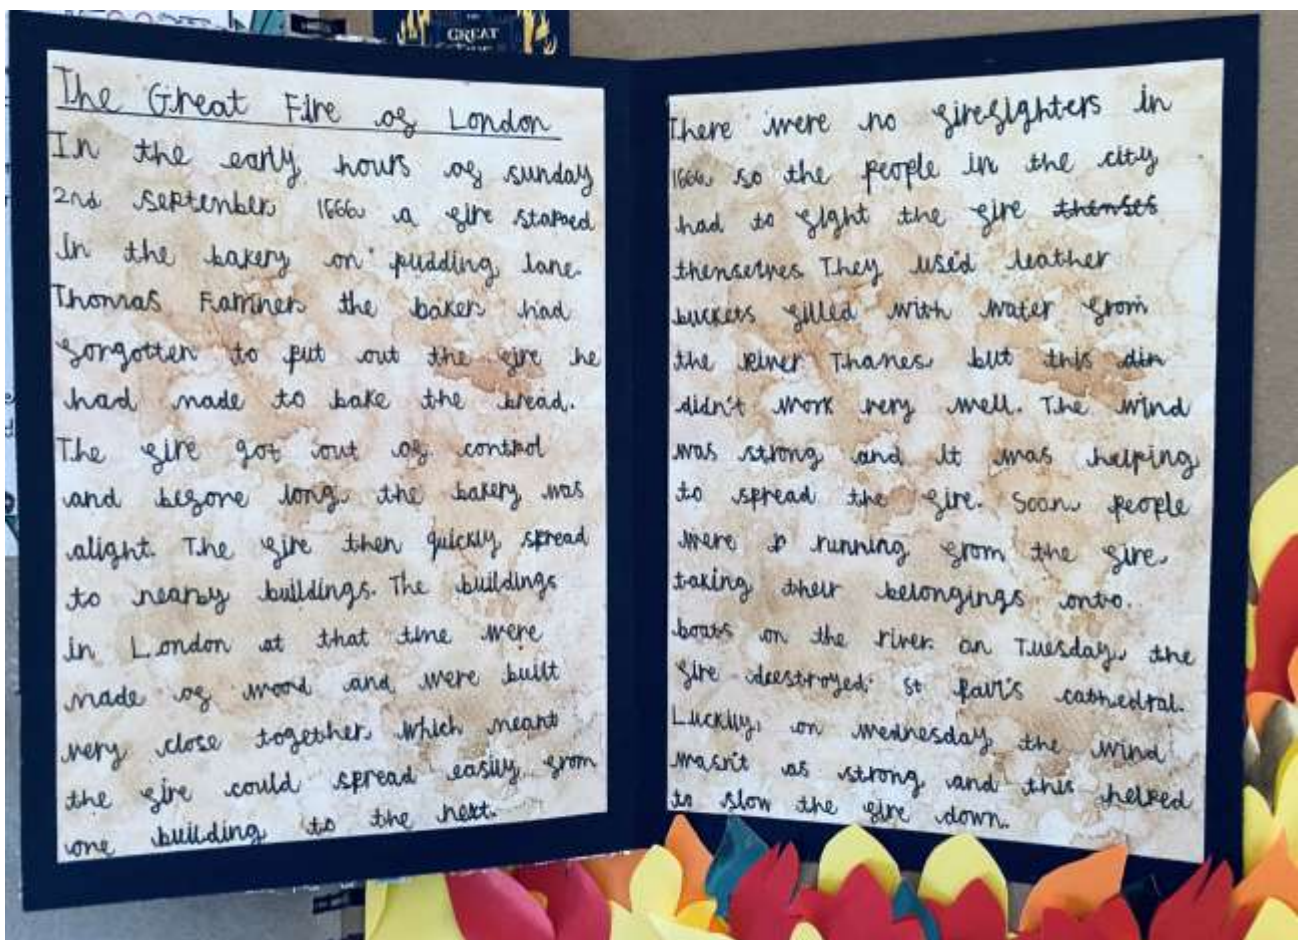 GREAT
The Great Fire of London
In the early hours of sunday
2nd September 1666 a fire starded
in the bakery on pudding lane.
Thomas Farriner the baker had
forgotten to put out the fire he
had made to bake the bread.
The fire got out of control
and before long, the bakery was
alight. The fire then quickly spread
to nearby buildings. The buildings
in London at that time were
made of wood and were built
very close together, which meant
the fire could spread easily from
one building to the next.
There were no firefighters in
1666, so the people in the city
had to fight the fire thenses
themselves. They used leather
buckets filled with water from
the River Thames, but this din
didn't work very well. The wind
was strong and it was helping
to spread the fire. Soon, people
were running from the fire,
taking their belongings onto
boats on the river. on Tuesday, the
fire deestroyed St Paul's cathedral.
Luckily, on wednesday the wind
wasn't as strong and this helped
to slow the fire down.